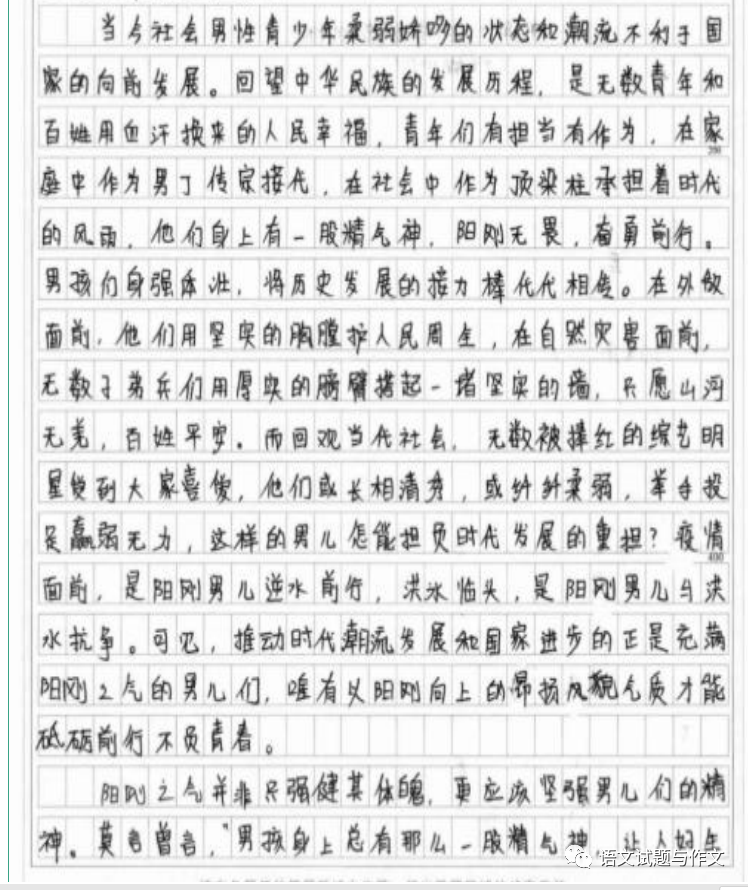 当今社会男性青少年柔弱娇哆的状态和潮流不利于国
家的向前发展。回望中华民族的发展历程，是无数青年和
百姓用血汗换来的人民幸福，青年们有担当有作为，在家
200
庭中作为男丁传宗接代，在社会中作为顶梁柱承担着时代
的风雨，他们身上有一股精气神，阳刚无畏，奋勇前行。
男孩们身强体壮，将历史发展的接力棒代代相传。在外敌
面前，他们用坚实的胸膛护人民周全，在自然灾害面前，
无数子弟兵们用厚实的臂搭起一堵坚实的墙，只愿山河
无恙，百姓平安。而回观当代社会，无数被捧红的综艺明
星受到大家喜爱，他们或长相清秀，或纤纤柔弱，举手投
足羸弱无力，这样的男儿怎能担负时代发展的重担？疫情
400
面前，是阳刚男儿逆水前行，洪水临头，是阳刚男儿与洪
水抗争。可见，推动时代潮流发展和国家进步的正是充满
阳刚之气的男儿们，唯有以阳刚向上的昂扬风貌气质才能
砥砺前行不负青春。
阳刚之气并非只强健其体魄，更应该坚强男儿们的精
神。莫言曾言，“男孩身上总有那么一股精气神，让人好生
语文试题与作文